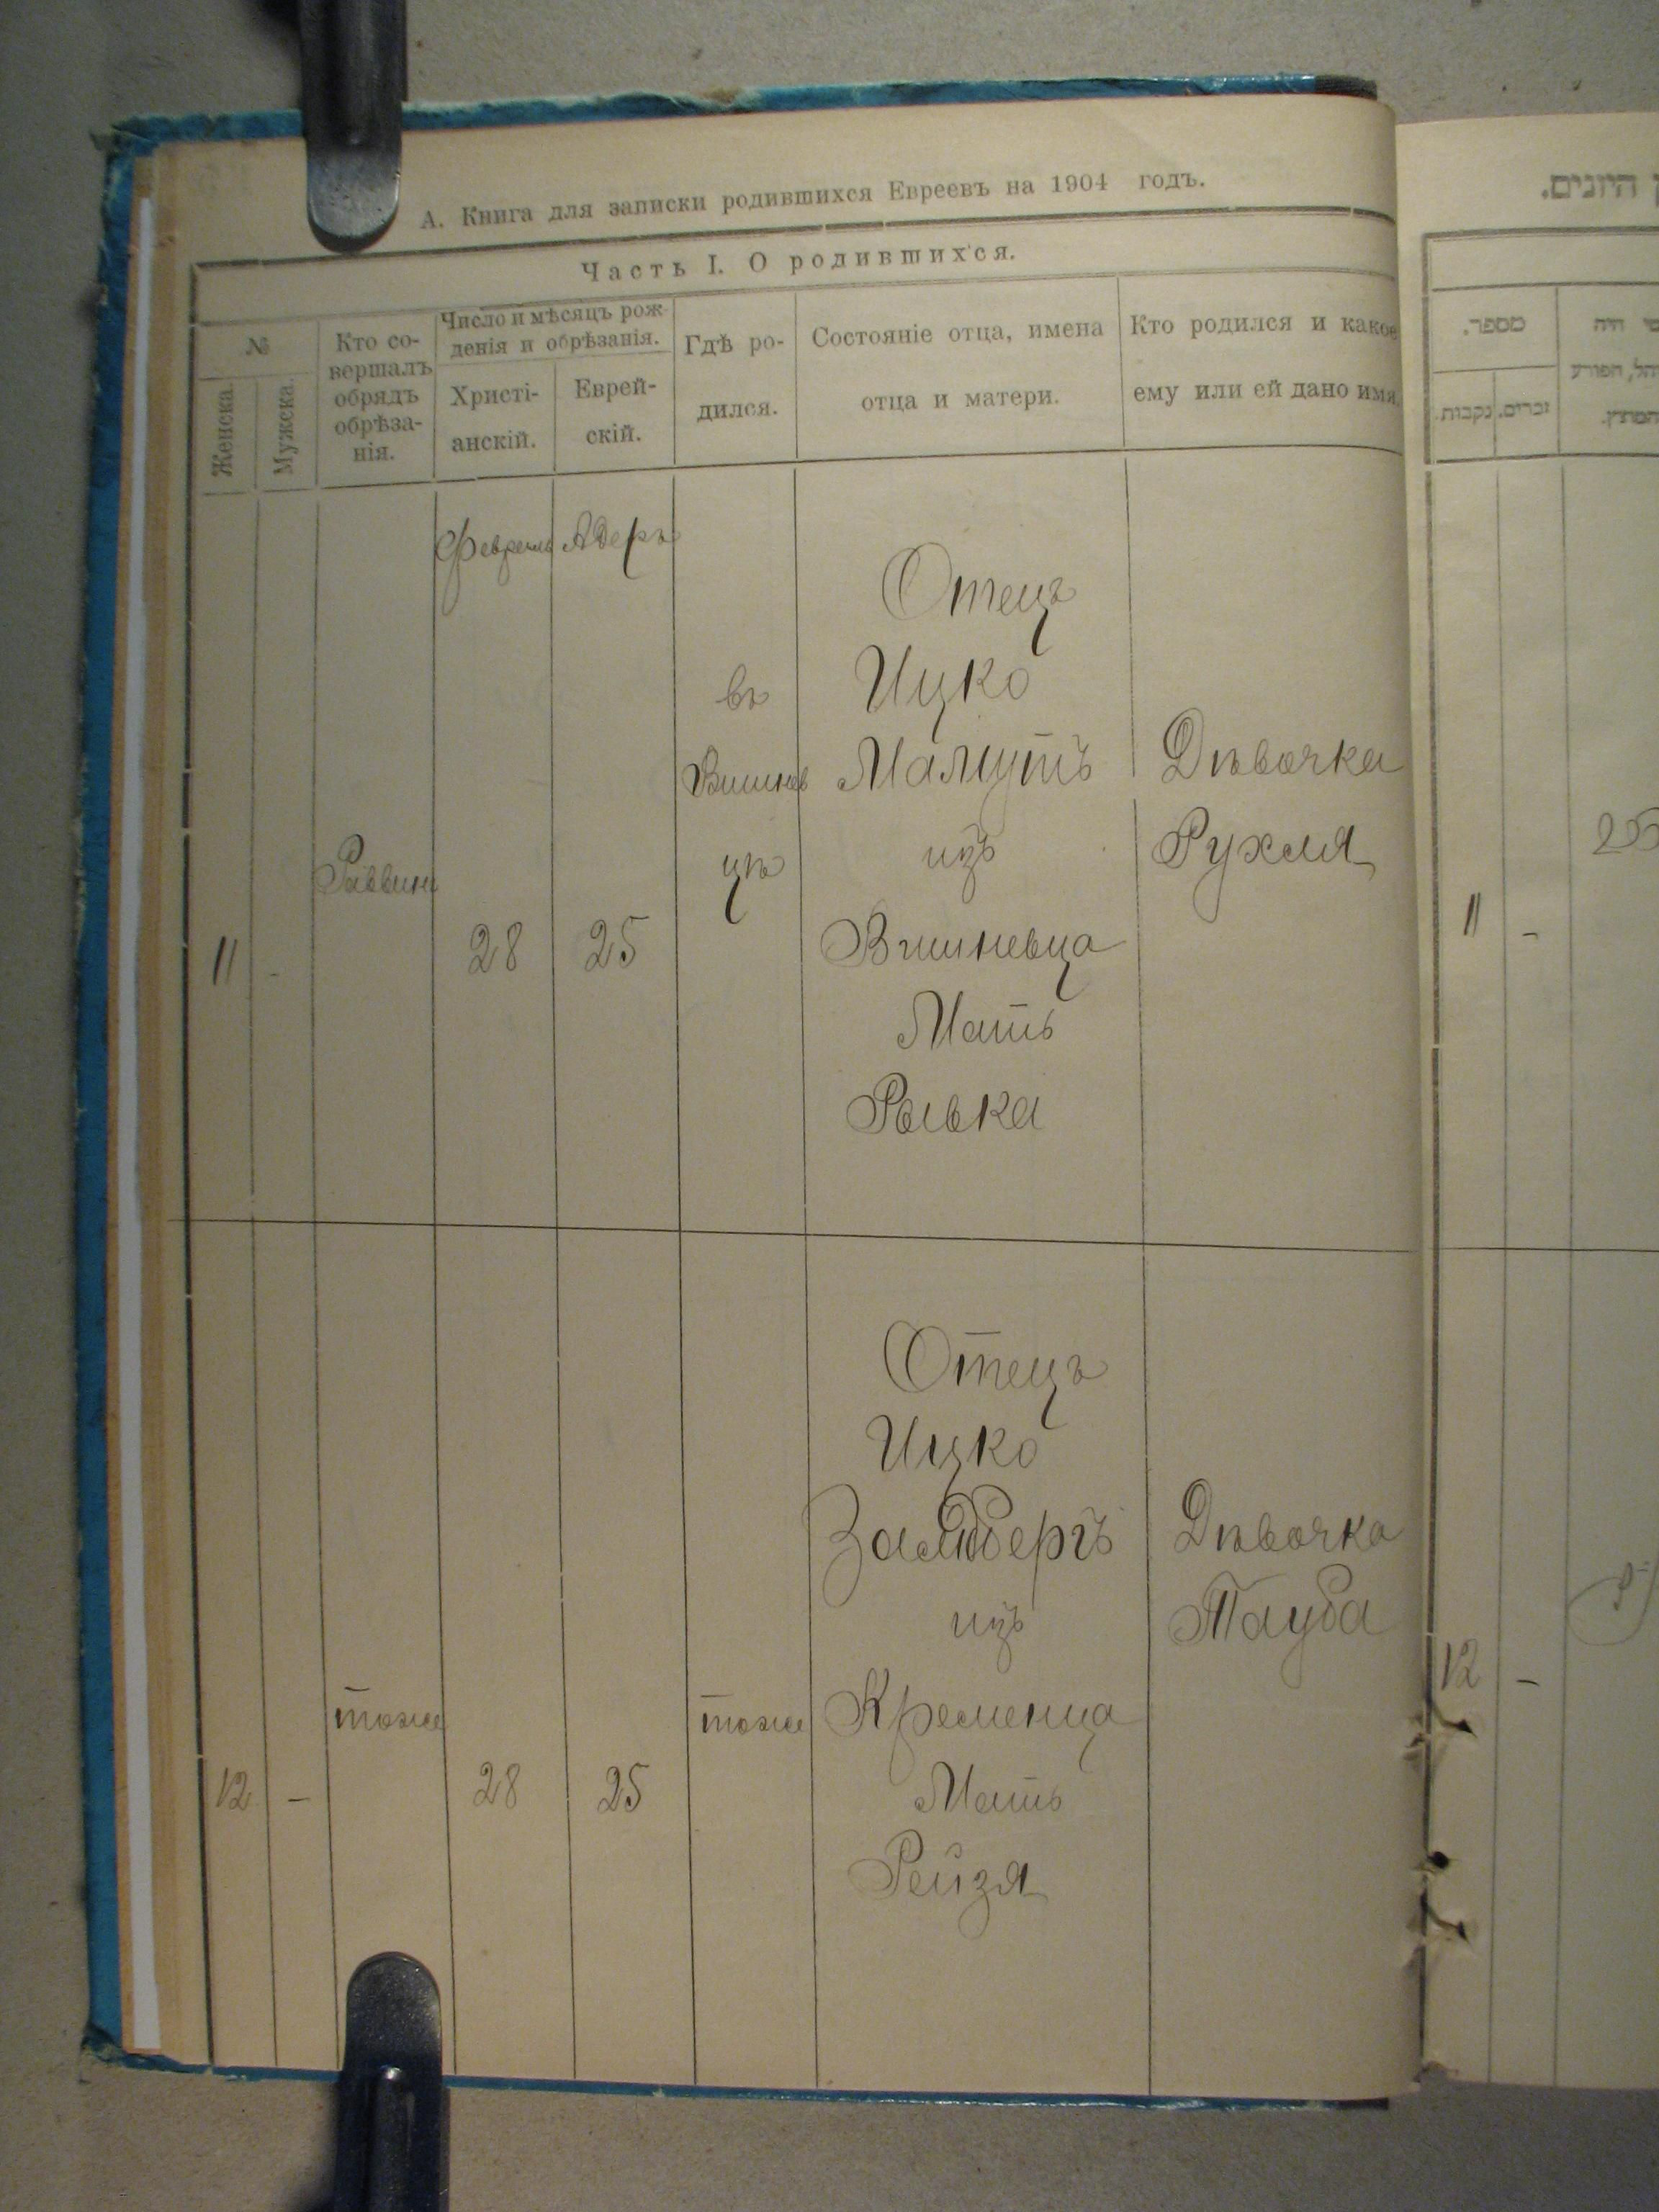 А. Книга для записки родившихся Евреевъ на 1904 годъ.
Часть I. О родившихся.
№
Женска.
Мужска.
Кто со-
вершалъ
обрядъ
обрѣза-
нія.
Число и мѣсяцъ рож-
денія и обрѣзанія.
Христі-
анскій.
Еврей-
скій.
Гдѣ ро-
дился.
Состояніе отца, имена
отца и матери.
Кто родился и какое
ему или ей дано имя.
Февраль
Адеръ
11
-
Раввинъ
28
25
въ
Вишнев
цѣ
Отецъ
Ицко
Маламутъ
изъ
Вишневца
Мать
Рывка
Дѣвочка
Рухля
12
-
тоже
28
25
тоже
Отецъ
Ицко
изъ
Кременца
Мать
Рейзя
Дѣвочка
Тауба
מספר.
נקבות.
זכרים.
11
-
25
12
-